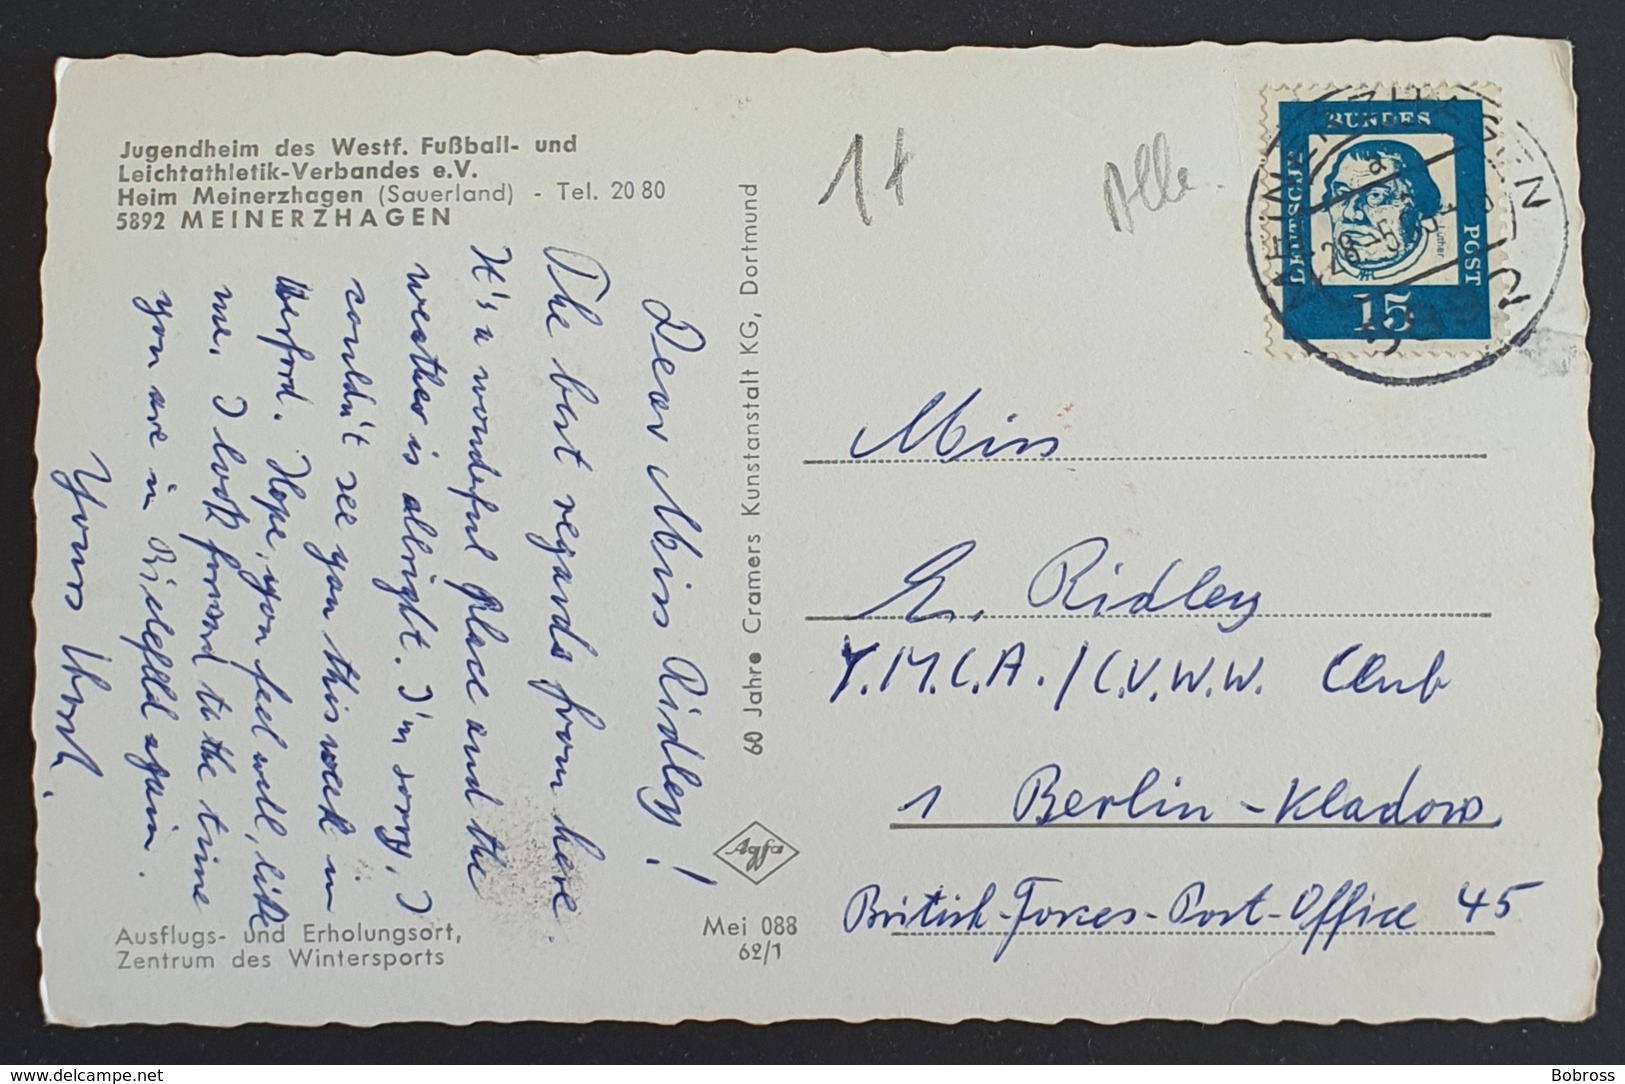 Jugendheim des Westf. Fußball- und
Leichtathletik-Verbandes e.V.
Heim Meinerzhagen (Sauerland) - Tel. 20 80
5892 MEINERZHAGEN
Dear Miss Ridley!
The best regards from here.
It's a wonderful place and the
weather is allright. I'm sorry, I
couldn't see you this week in
Herford. Hope, you feel well, like
me. I look forward to the time
you are in Bielefeld again.
Yours
Ausflugs- und Erholungsort,
Zentrum des Wintersports
60 Jahre Cramers Kunstanstalt KG, Dortmund
Agfa
Mei 088
62/1
DEUTSCHE
BUNDES
POST
Luther
15
MEINERZHAGEN
Miss
E. Ridley
Y.M.C.A./C.V.W.W. Club
1 Berlin-Kladow
British-Forces-Post-Office 45
Bobross
delcampe.net